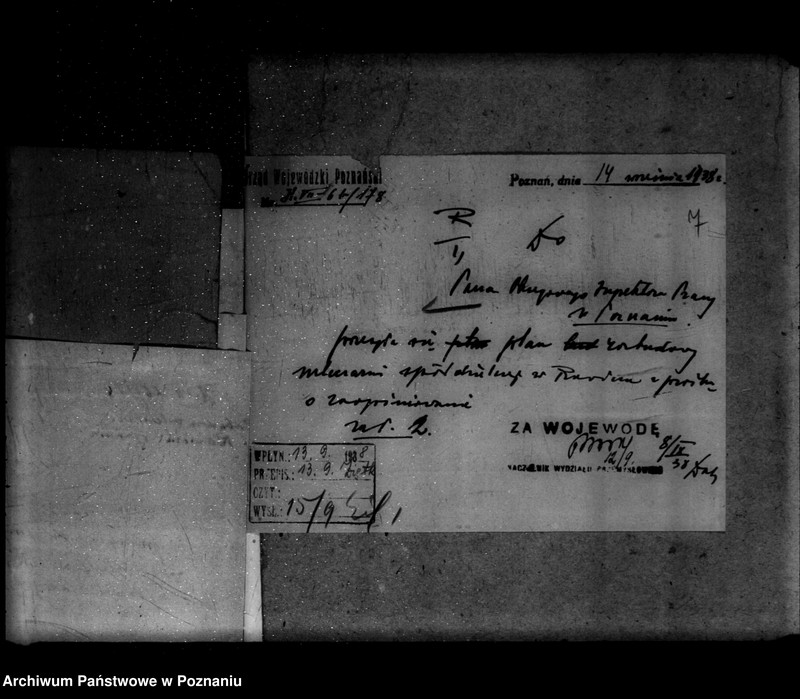 Urząd Wojewódzki Poznański
Poznań, dnia 14 września 1938 r.
7
R
Do
Pana Okręgowego Inspektora Pracy
w Poznaniu.
przesyła się plan rozbudowy
mleczarni spółdzielczej w z prośbą
o zaopiniowanie
zał. 2.
ZA WOJEWODĘ
12/9.
8/IX
38
NACZELNIK WYDZIAŁU PRZEMYSŁOWEGO
WPŁYN.: 13. 9. 1938
PRZEPIS.: 13. 9.
CZYT.:
WYSŁ.: 15/9
Archiwum Państwowe w Poznaniu